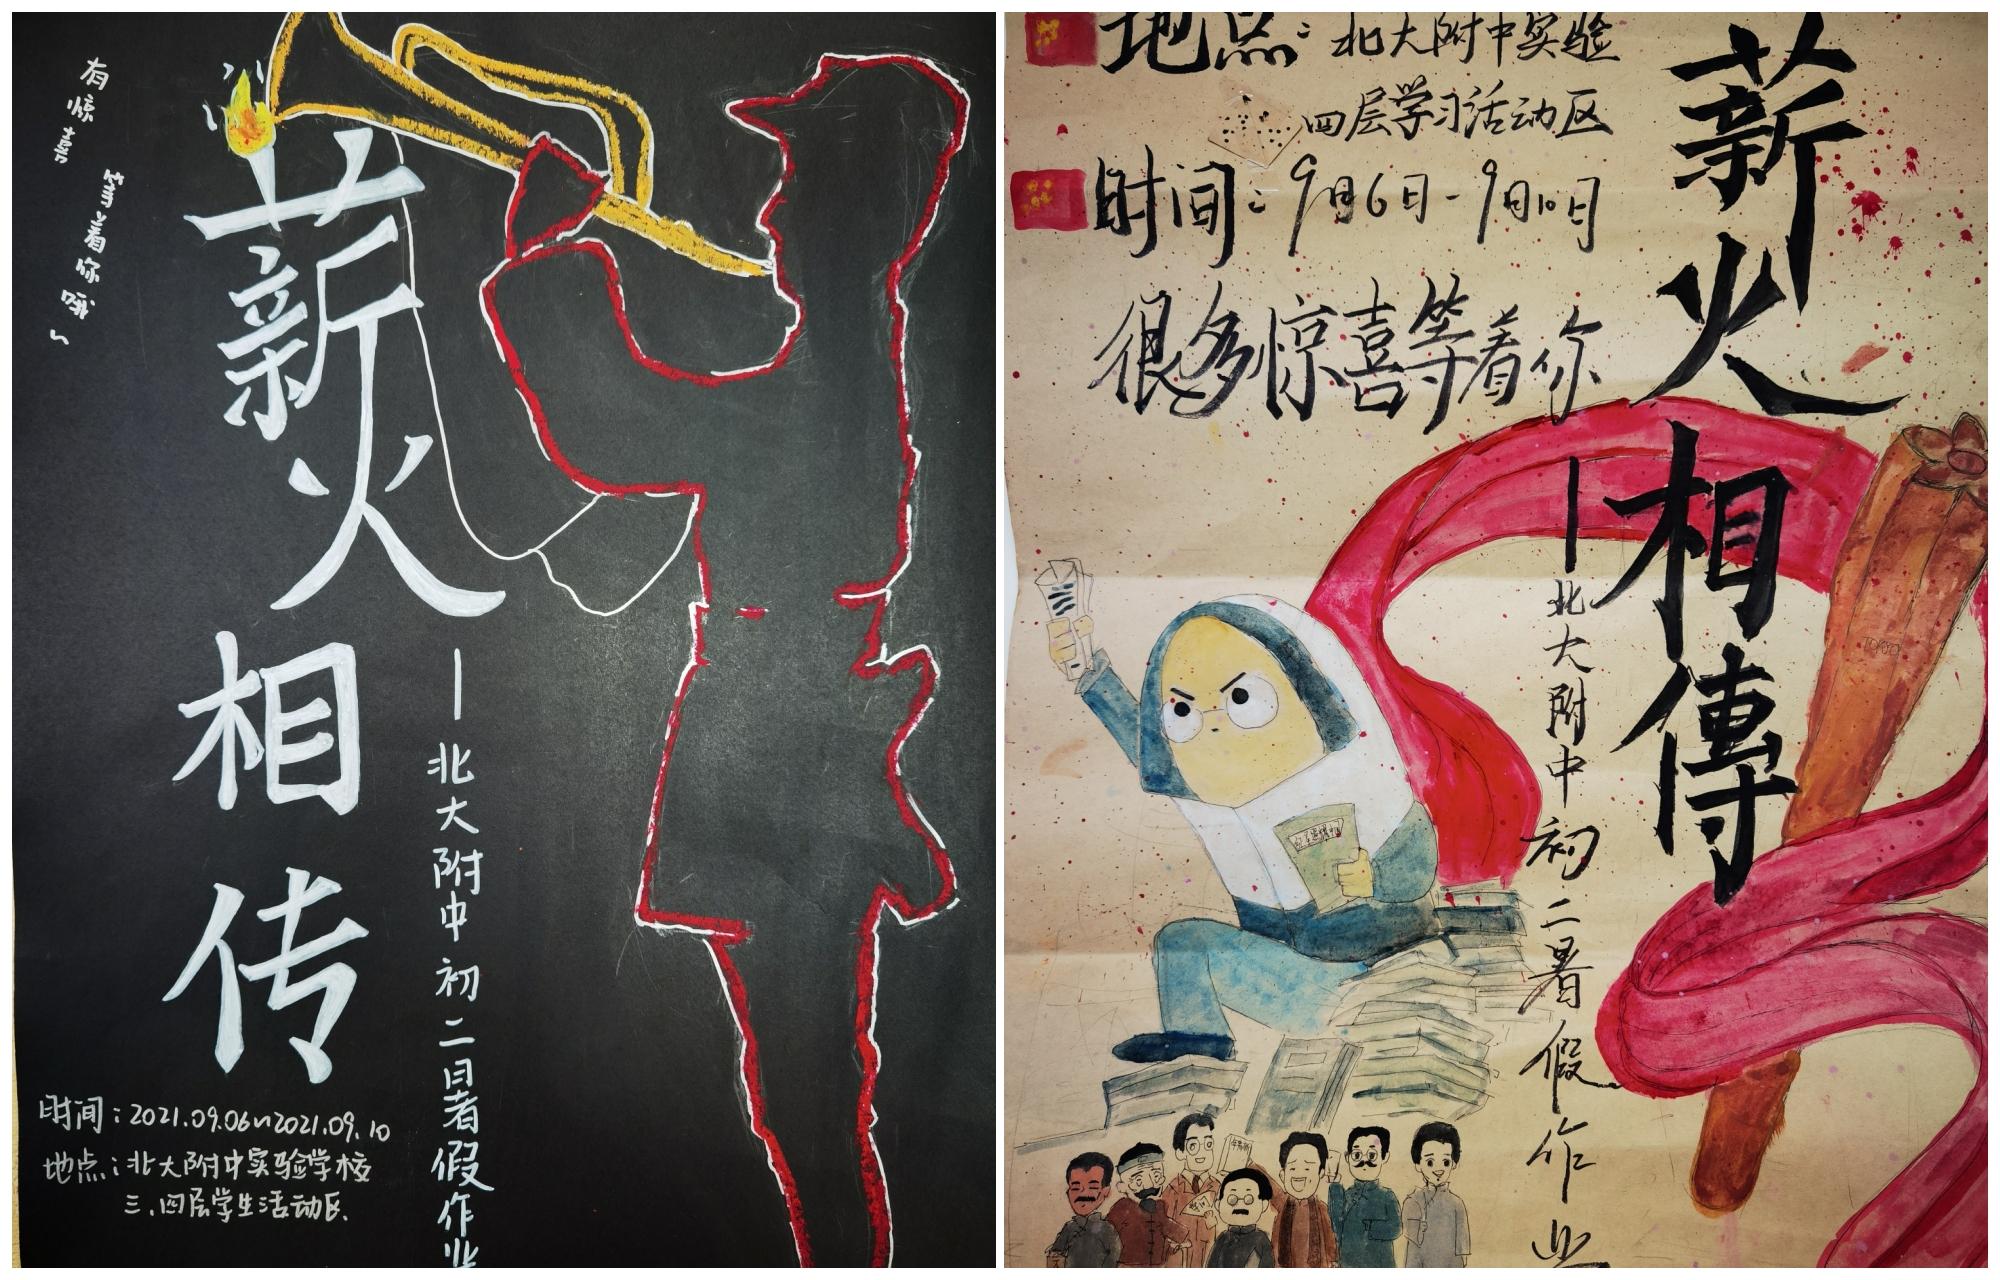 有惊喜
等着你哦~
薪火相传
—北大附中初二暑假作业
时间:2021.09.06~2021.09.10
地点:北大附中实验学校
三.四层学生活动区.
地点:北大附中实验
四层学习活动区
时间:9月6日-9月10日
很多惊喜等着你
薪火相傳
—北大附中初二暑假作业